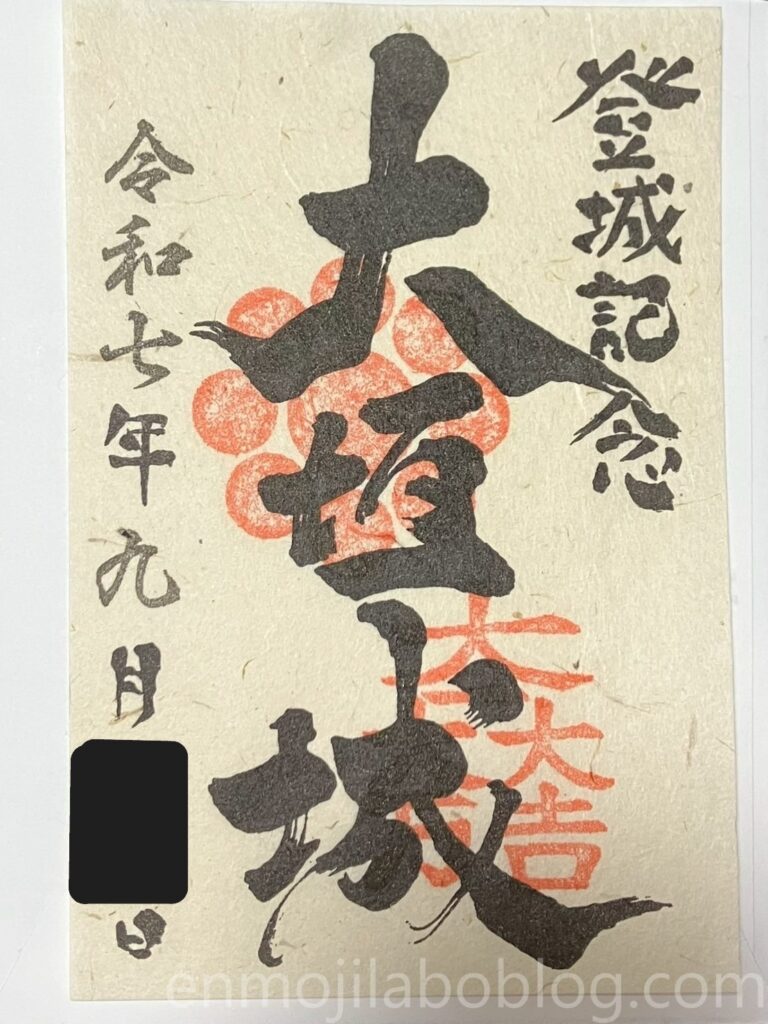 登城記念
大垣城
大一大万大吉
令和七年九月
日
enmojilaboblog.com